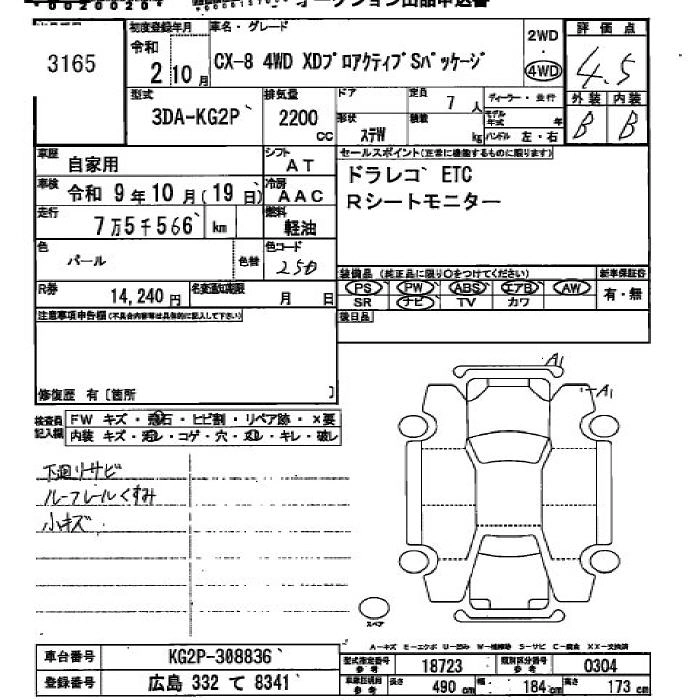 オークション出品申込書
3165
初度登録年月 車名・グレード
令和
2 10月
CX-8 4WD XDプロアクティブSパッケージ
2WD
4WD
評価点
4.5
外装 内装
B B
型式
3DA-KG2P
排気量
2200
cc
ドア
定員
7 人
ディーラー・並行
形状
ステW
積載
kg
モデル年式
年
ハンドル 左・右
車歴
自家用
シフト
AT
セールスポイント(正常に機能するものに限ります)
ドラレコ ETC
Rシートモニター
車検
令和 9年 10月(19日)
冷房
AAC
走行
7万5千566 km
燃料
軽油
色
パール
色替
色コード
250
装備品(純正品に限り〇をつけてください)
新車保証書
PS PW ABS エアB AW
SR ナビ TV カワ
有・無
R券
14,240円
名変通知期限
月 日
注意事項申告欄(不具合内容等は具体的に記入して下さい)
後日品
修復歴 有〔箇所 〕
検査員記入欄
FW キズ・飛石・ヒビ割・リペア跡・X要
内装 キズ・汚レ・コゲ・穴・スレ・キレ・破レ
下廻りサビ
ルーフレールくすみ
小キズ
A1
A1
スペア
A-キズ E-エクボ U-凹み W-補修跡 S-サビ C-腐食 XX-交換済
車台番号
KG2P-308836
型式指定番号
参考
18723
類別区分番号
参考
0304
登録番号
広島 332 て 8341
車庫証明用
参考
長さ
490 cm
幅
184 cm
高さ
173 cm